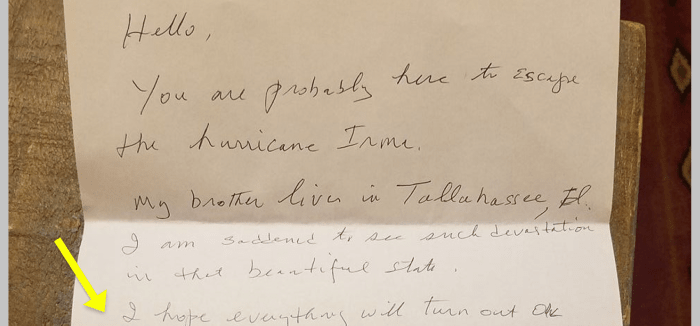 Hello,
You are probably here to escape
the hurricane Irma.
My brother lives in Tallahassee, Fl.
I am saddened to see such devastation
in that beautiful state.
I hope everything will turn out ok